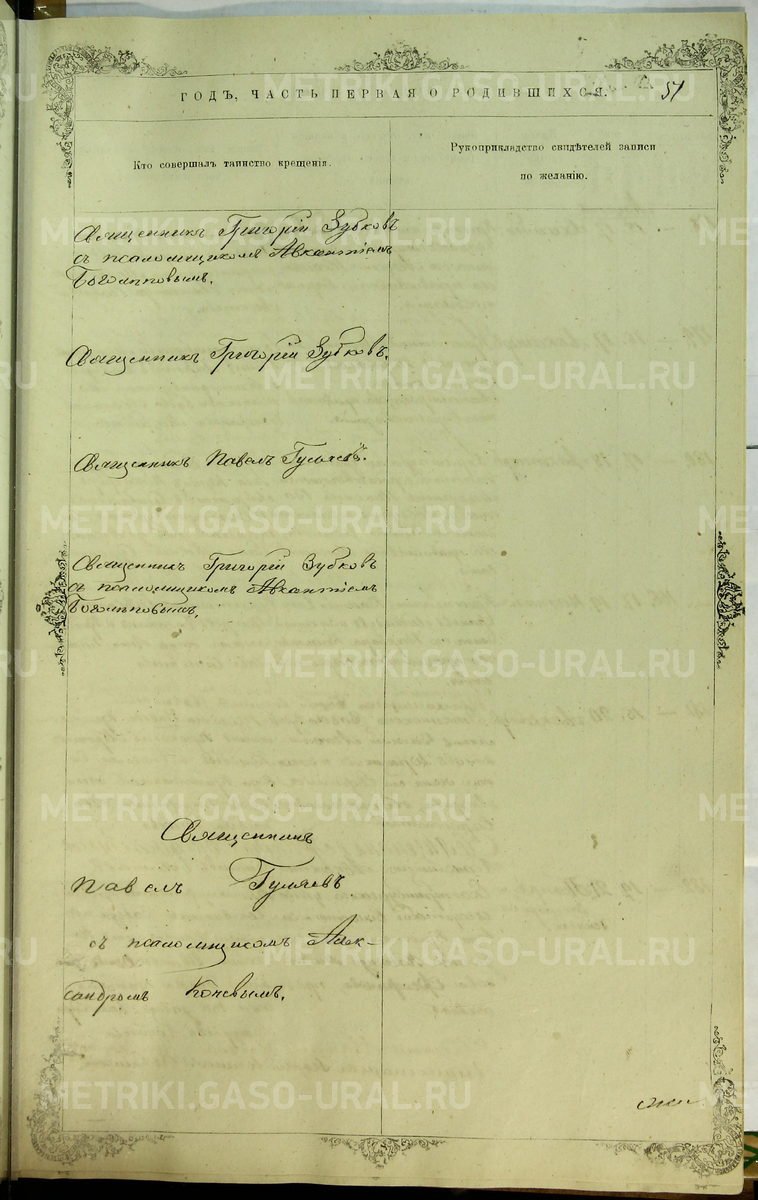 ГОДЪ, ЧАСТЬ ПЕРВАЯ О РОДИВШИХСЯ.
51
Кто совершалъ таинство крещенія.
Рукоприкладство свидѣтелей записи
по желанію.
Священникъ Григорій Зубковъ
съ псаломщикомъ Авксентіемъ
Священникъ Григорій Зубковъ.
Священникъ Павелъ Гуляевъ.
Священникъ Григорій Зубковъ
съ псаломщикомъ Авксентіемъ
Священникъ
Павелъ Гуляевъ
съ псаломщикомъ Алек-
сандромъ
METRIKI.GASO-URAL.RU